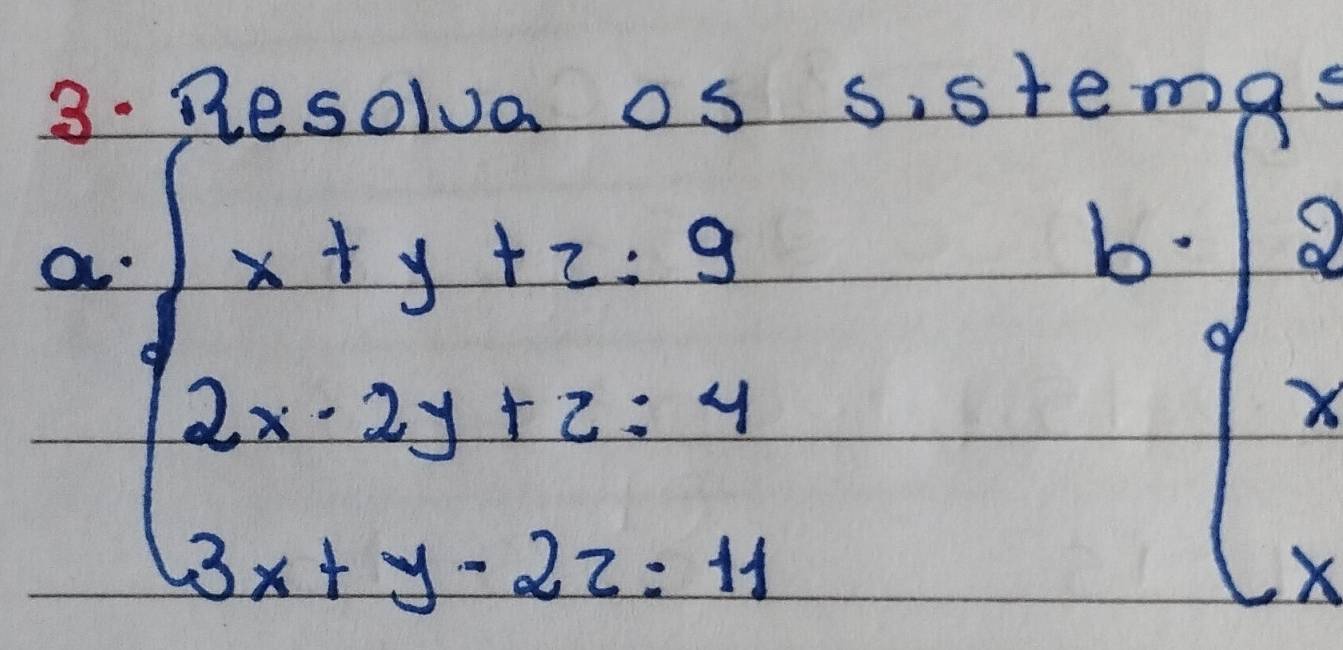 3. Resolva os sistemas
a. { x + y + z = 9 b. { 2
2x - 2y + z = 4 x
3x + y - 2z = 11 x